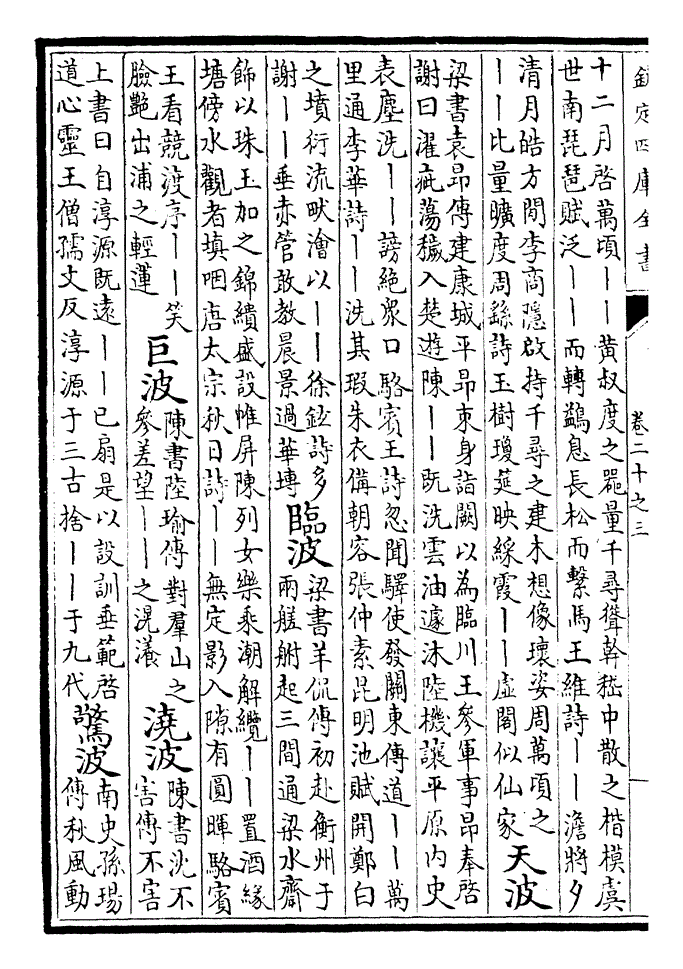 欽定四庫全書
卷二十之三
十二月啓萬頃丨丨黄叔度之噐量千尋聳幹嵇中散之楷模虞
世南琵琶賦泛丨丨而轉鷁息長松而繫馬王維詩丨丨澹將夕
清月皓方閒李商隱啟持千尋之建木想像瓌姿周萬頃之
丨丨比量曠度周繇詩玉樹瓊筵映綵霞丨丨虛閣似仙家
天波
梁書袁昂傳建康城平昂束身詣闕以為臨川王參軍事昂奉啓
謝曰濯疵蕩穢入楚遊陳丨丨既洗雲油遽沐陸機讓平原内史
表塵洗丨丨謗絶衆口駱賓王詩忽聞驛使發關東傳道丨丨萬
里通李華詩丨丨洗其瑕朱衣備朝容張仲素昆明池賦開鄭白
之墳衍流畎澮以丨丨徐鉉詩多
謝丨丨垂赤管敢教晨景過華塼
臨波
梁書羊侃傳初赴衡州于
兩艖艄起三間通梁水齋
飾以珠玉加之錦繢盛設帷屏陳列女樂乘潮解纜丨丨置酒緣
塘傍水觀者填咽唐太宗秋日詩丨丨無定影入隙有圓暉駱賓
王看競渡序丨丨笑
臉艷出浦之輕蓮
巨波
陳書陸瑜傳對羣山之
參差望丨丨之滉瀁
澆波
陳書沈不
害傳不害
上書曰自淳源既遠丨丨已扇是以設訓垂範啓
道心靈王僧孺文反淳源于三古捨丨丨于九代
驚波
南史孫瑒
傳秋風動